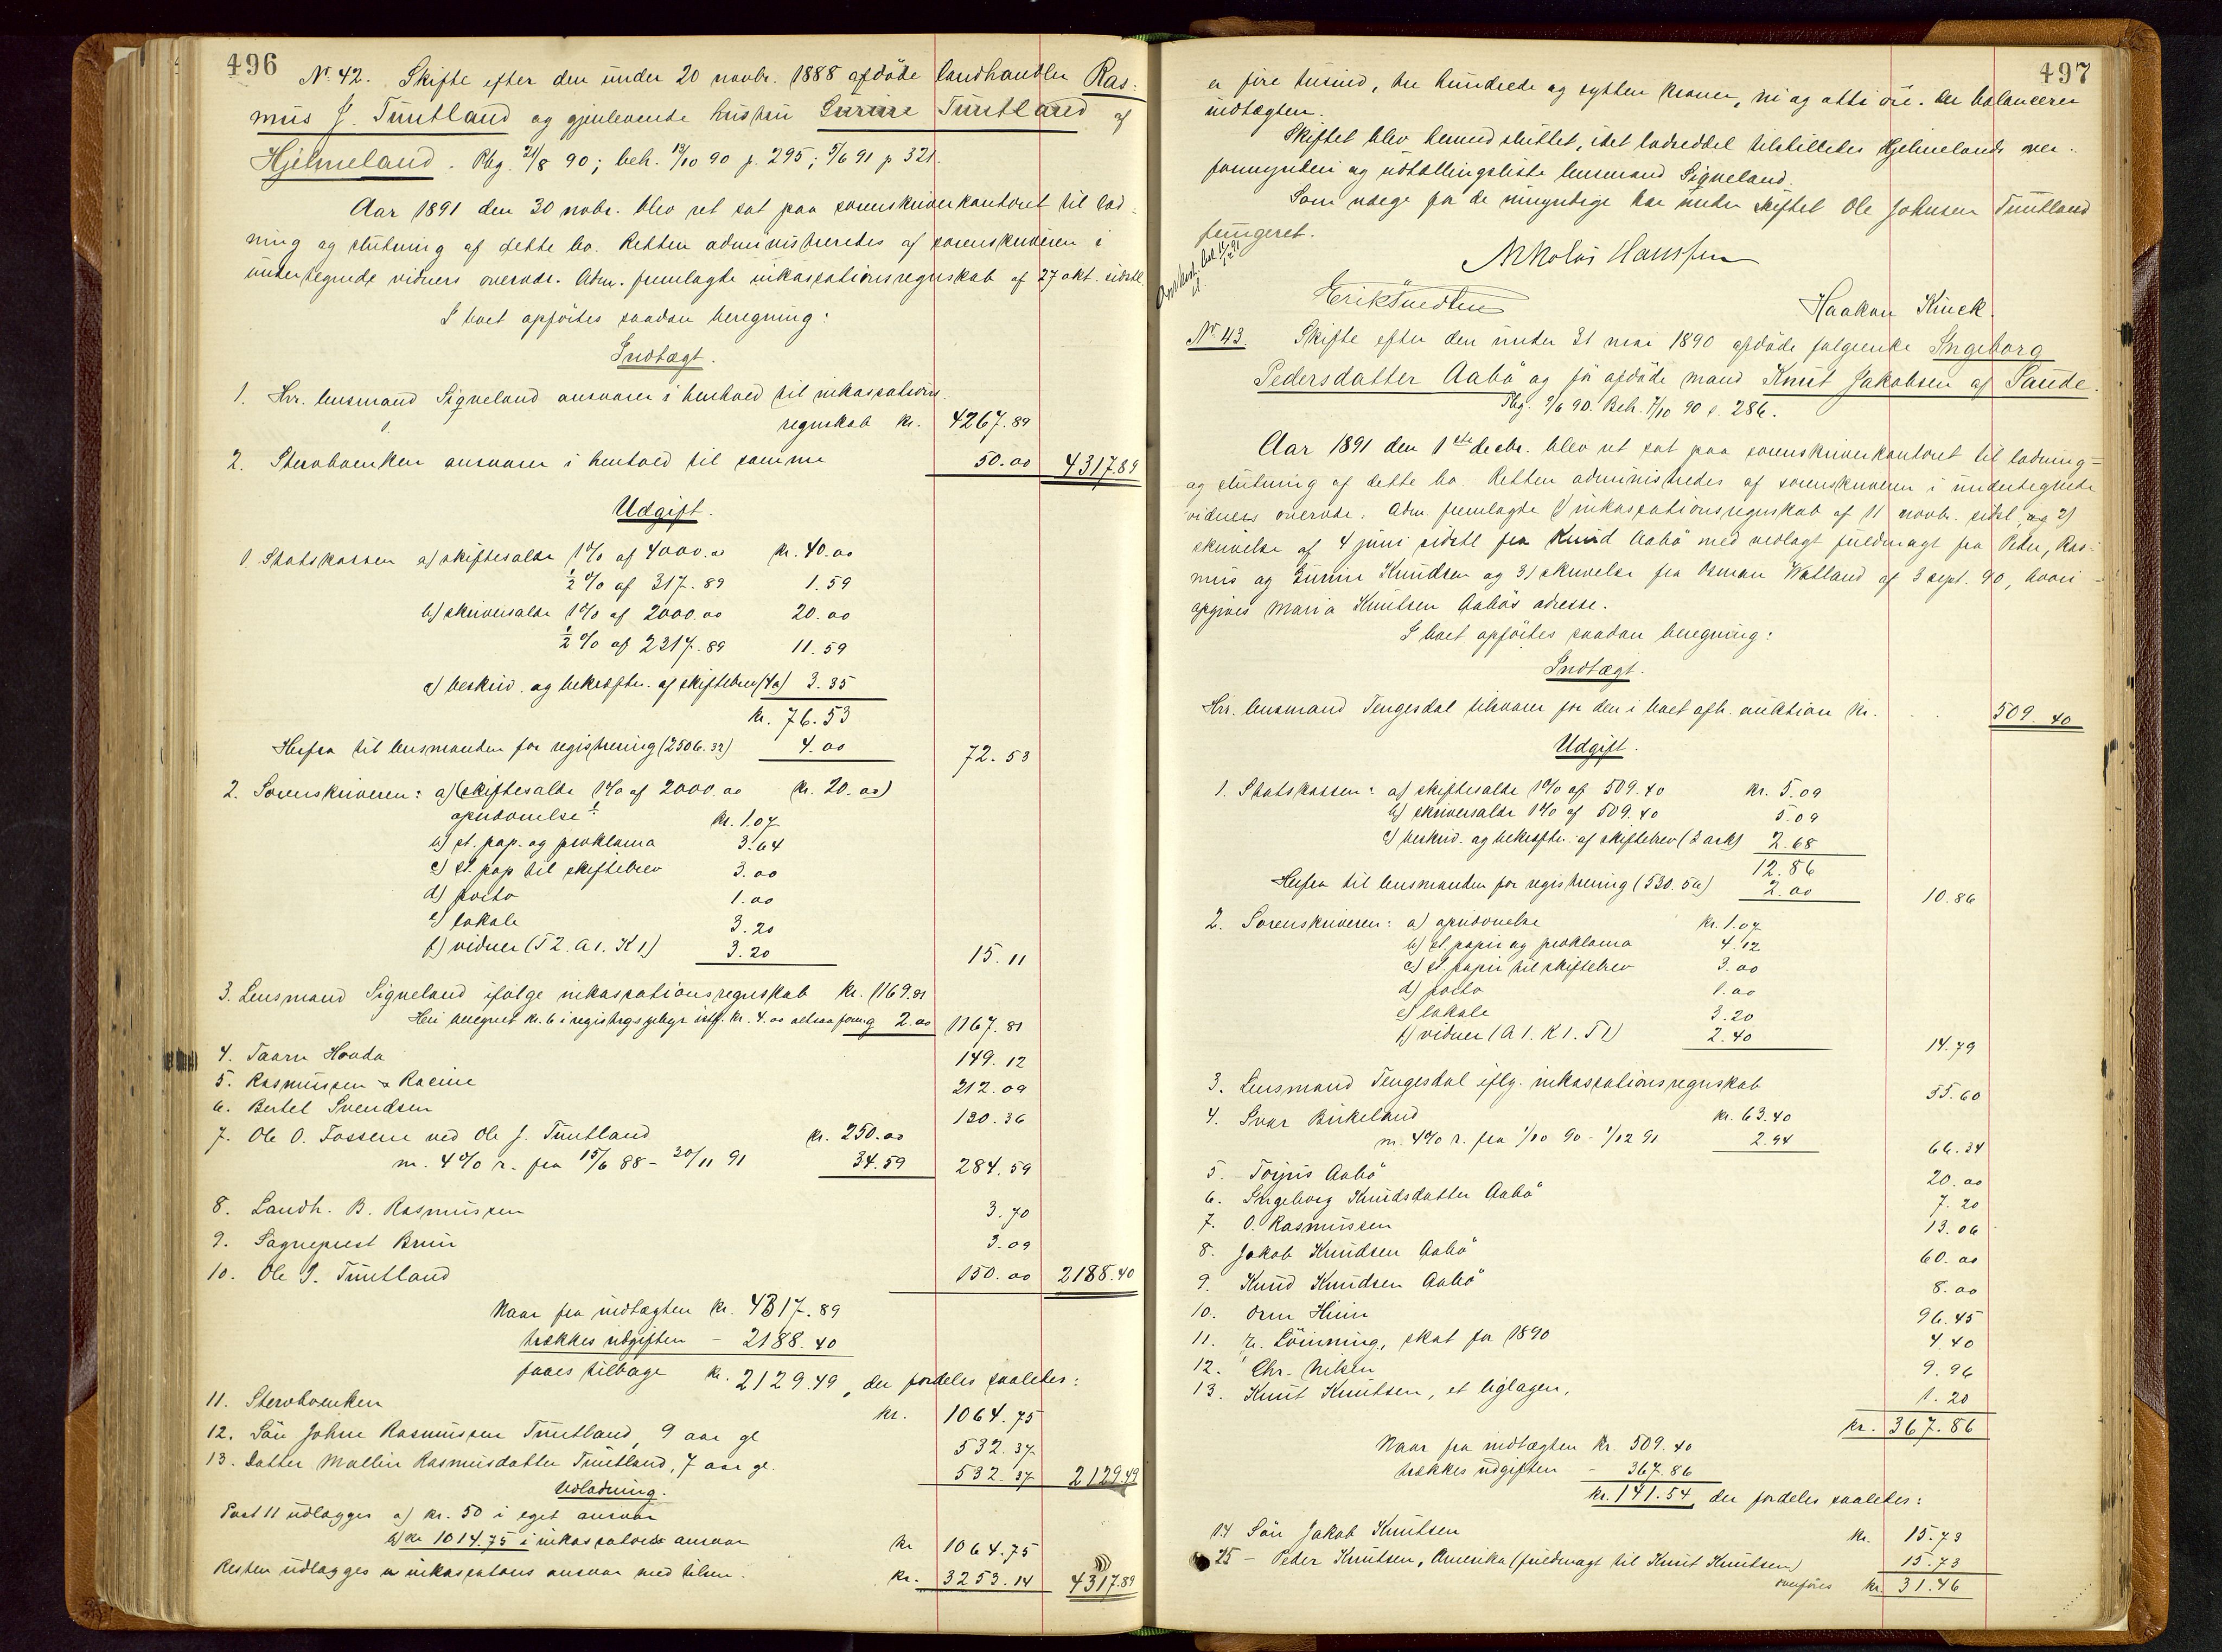 496
Nº 42. Skifte efter den under 20 novbr. 1888 afdöde landhandler Ras-
mus J. Tuntland og gjenlevende hustru Gurine Tuntland af
Hjelmeland. Rbg. 21/8 90; beh. 13/10 90 p. 295; 5/6 91 p 321.
Aar 1891 den 30 novbr. blev ret sat paa sorenskriverkontoret til lod-
ning og slutning af dette bo. Retten administreredes af sorenskriveren i
undertegnede vidners overvær. Adm. fremlagte inkassationsregnskab af 27 okt. sidstl.
I boet opförtes saadan beregning:
Indtægt.
1. Hr. lensmand Sigveland ansvarer i henhold til inkassations-
regnskab kr. 4267.89
2. Stervboenken ansvarer i henhold til samme 50.00 4317.89
Udgift.
1. Statskassen a) skiftesalær 1% af 4000.00 kr. 40.00
½% af 317.89 1.59
b) skriversalær 1% af 2000.00 20.00
½% af 2317.89 11.59
c) beskriv. og bekræftn. af skiftebrev (4a) 3.35
kr. 76.53
Herfra til lensmanden for registrering (2506.32) 4.00 72.53
2. Sorenskriveren: a) (skiftesalær 1% af 2000.00 kr. 20.00)
kr. 1.07
b) st. pap. og proklama 3.64
c) st. pap til skiftebrev 3.00
d) porto 1.00
e) lokale 3.20
f) vidner (T2. A1. K1) 3.20 15.11
3. Lensmand Sigveland ifölge inkassationsregnskab kr. 1169.81
Heri beregnet kr. 6 i registrgsgebyr istf. kr. 4.00 altsaa formg 2.00 1167.81
4. Taarn Houda 149.12
5. Rasmussen & Racine 212.09
6. Bertel Svendsen 130.36
7. Ole O. Fossene ved Ole J. Tuntland kr. 250.00
m. 4% r. fra 15/6 88 - 30/11 91 34.59 284.59
8. Landh. B. Rasmussen 3.70
9. Sognepræst Brun 3.09
10. Ole J. Tuntland 150.00 2188.40
Naar fra indtægten kr. 4317.89
trækkes udgiften - 2188.40
faaes tilbage kr. 2129.49, der fordeles saaledes:
11. Stervboenken kr. 1064.75
12. Sön Johne Rasmussen Tuntland, 9 aar gl 532.37
13. Datter Mallin Rasmusdatter Tuntland, 7 aar gl. 532.37 2129.49
Udlodning.
Post 11 udlægges a) kr. 50 i eget ansvar
b) kr 1014.75 i inkassators ansvar kr 1064.75
Resten udlægges i inkassators ansvar med tilsm. kr. 3253.14 4317.89
497
er fire tusind, tre hundrede og sytten kroner, ni og otti öre. der balancerer
indtægten.
Skiftet blev hermed sluttet, idet lodseddel tilstilledes Hjelmelands over-
formynderi og udtællingsliste lensmand Sigveland.
Som værge for de umyndige har under skiftet Ole Johnsen Tuntland
fungeret.
Nikolai Hanssen
Erik Svedsen
Haakon Kinck.
Nº 43. Skifte efter den under 31 mai 1890 afdöde folgeenke Ingeborg
Pedersdatter Aabö og för afdöde mand Knut Jakobsen af Saude.
Rbg. 9/6 90. Beh. 7/10 90 p. 286.
Aar 1891 den 1ste decbr. blev ret sat paa sorenskriverkontoret til lodning
og slutning af dette bo. Retten administredes af sorenskriveren i undertegnede
vidners overvær. Adm fremlagte 1) inkassationsregnskab af 11 novbr. sidstl, og 2)
skrivelse af 4 juni sidstl fra Knud Aabö med vedlagt fuldmagt fra Peder, Ras-
mus og Gurine Knudsen og 3) skrivelse fra Osman Watland af 3 sept. 90, hvori
opgives Maria Knutsen Aabös adresse.
I boet opförtes saadan beregning:
Indtægt.
Hr. lensmand Tengesdal tilsvarer for den i boet afh. auktion kr. 509.40
Udgift.
1. Statskassen: a) skiftesalær 1% af 509.40 kr. 5.09
b) skriversalær 1% af 509.40 5.09
c) beskriv. og bekræftn. af skiftebrev (3 ark) 2.68
12.86
Herfra til lensmanden for registrering (530.56) 2.00 10.86
2. Sorenskriveren: a) kr. 1.07
b) st. papir og proklama 4.12
c) st. papir til skiftebrev 3.00
d) porto 1.00
e) lokale 3.20
f) vidner (A1. K1. T1) 2.40 14.79
3. Lensmand Tengesdal iflg. inkassationsregnskab 55.60
4. Ivar Birkeland kr. 63.40
m. 4% r. fra 1/10 90 - 1/12 91 2.94 66.34
5. Torjus Aabö 20.00
6. Ingeborg Knudsdatter Aabö 7.20
7. O. Rasmussen 13.06
8. Jakob Knudsen Aabö 60.00
9. Knud Knudsen Aabö 8.00
10. Orm Hiim 96.45
11. Löining, skat for 1890 4.40
12. Chr. Nilsen 9.96
13. Knut Knutsen, et liglagen, 1.20
kr. 367.86
Naar fra indtægten kr. 509.40
trækkes udgiften - 367.86
kr. 141.54, der fordeles saaledes:
14 Sön Jakob Knutsen kr. 15.73
15 - Peder Knutsen, Amerika (fuldmagt til Knut Knutsen) 15.73
overföres kr. 31.46